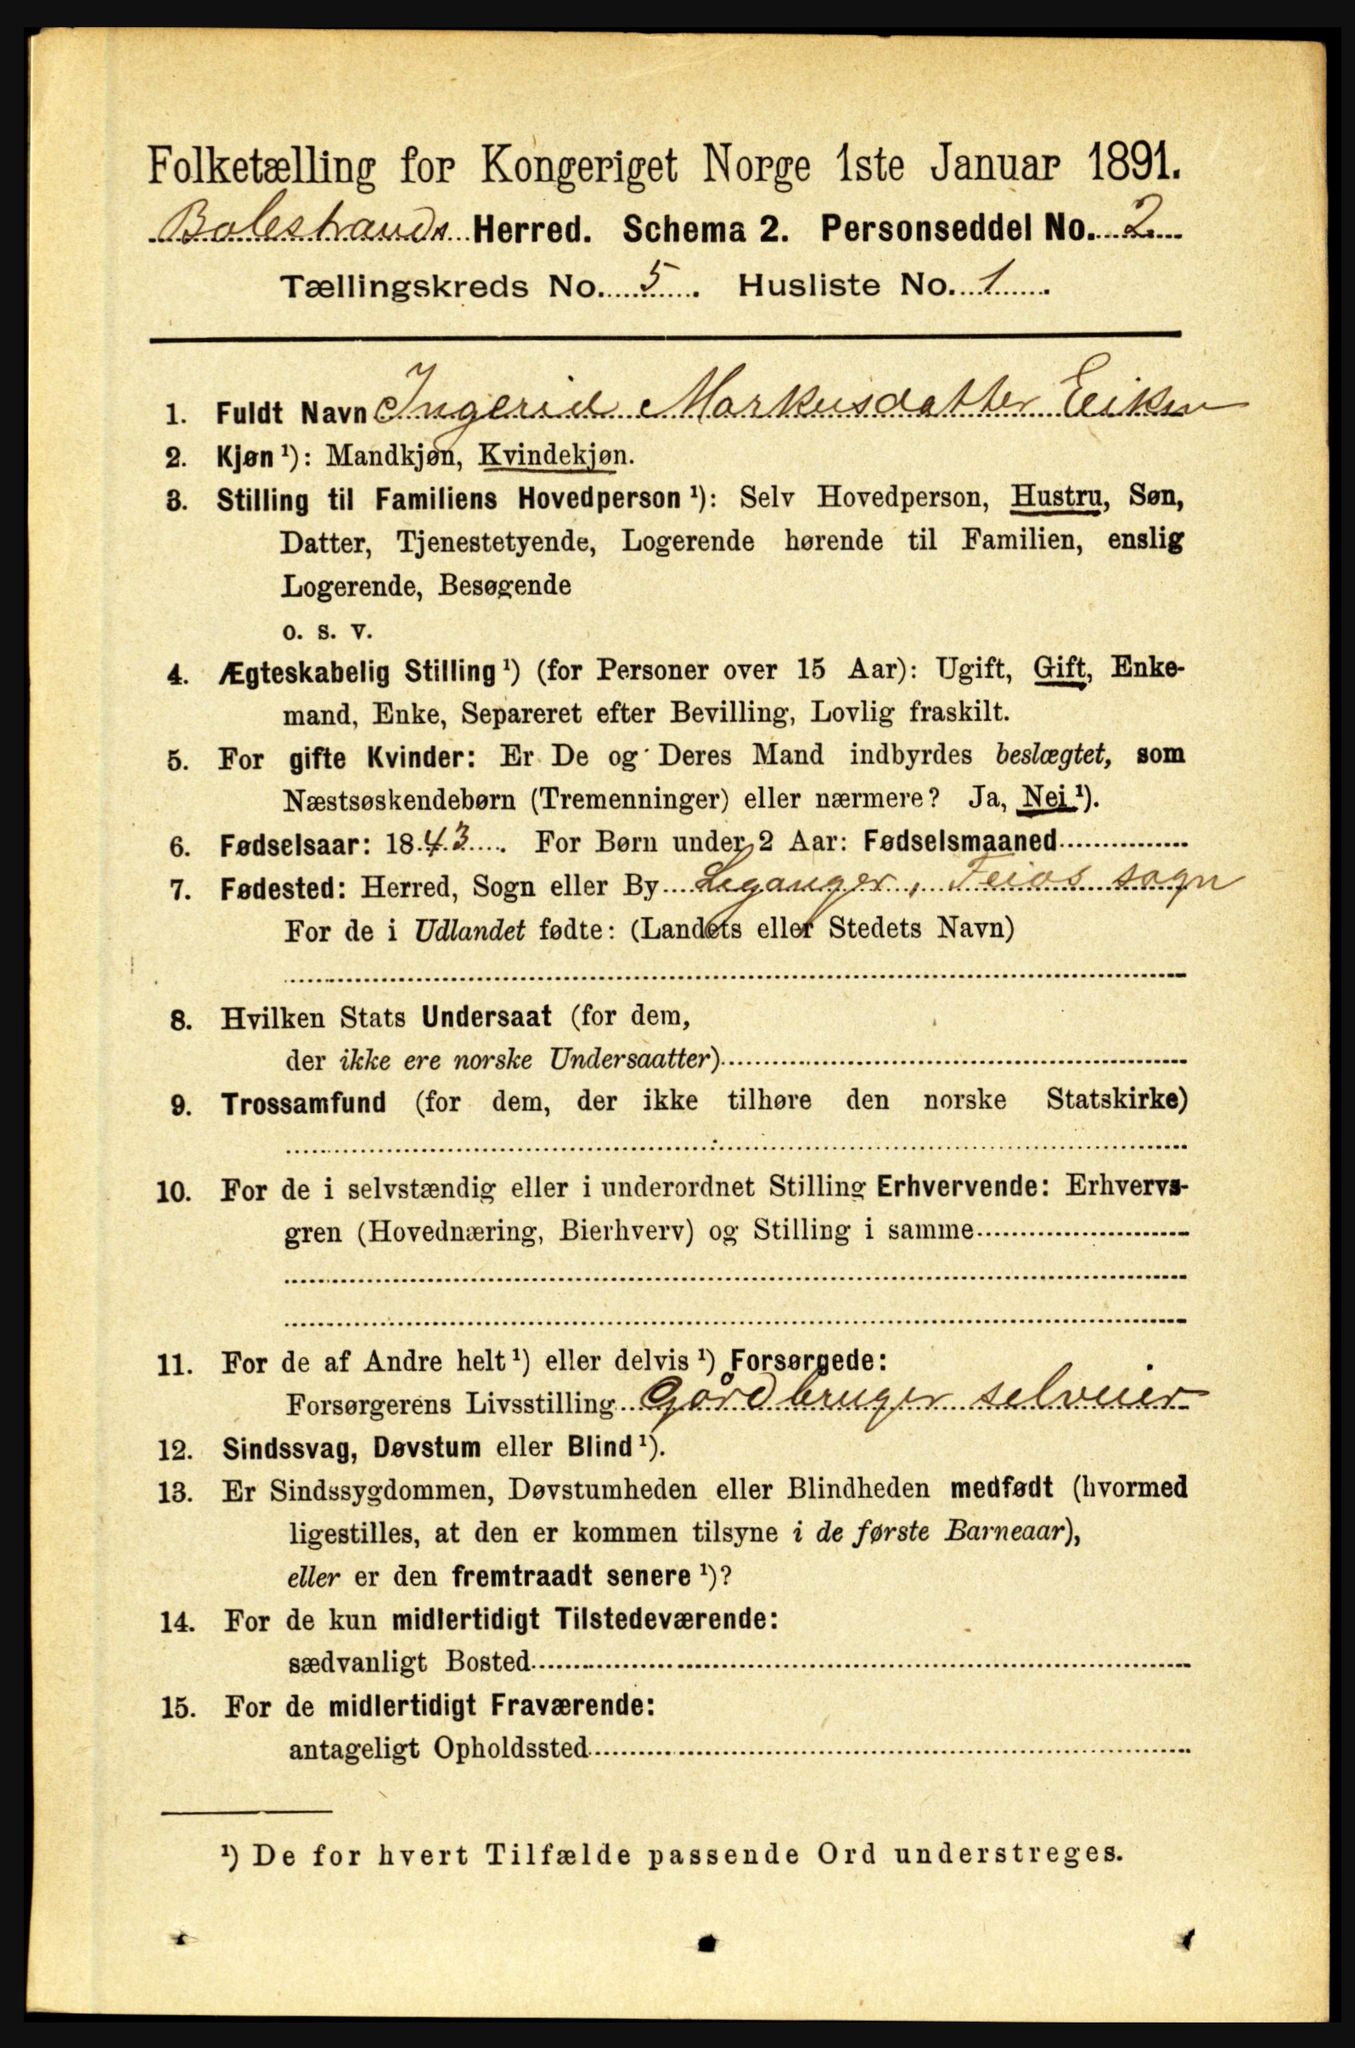 Folketælling for Kongeriget Norge 1ste Januar 1891.
Balestrands Herred. Schema 2. Personseddel No. 2
Tællingskreds No. 5. Husliste No. 1.
1. Fuldt Navn Ingerid Markusdatter Eiken
2. Kjøn ¹): Mandkjøn, Kvindekjøn.
3. Stilling til Familiens Hovedperson ¹): Selv Hovedperson, Hustru, Søn,
Datter, Tjenestetyende, Logerende hørende til Familien, enslig
Logerende, Besøgende
o. s. v.
4. Ægteskabelig Stilling ¹) (for Personer over 15 Aar): Ugift, Gift, Enke-
mand, Enke, Separeret efter Bevilling, Lovlig fraskilt.
5. For gifte Kvinder: Er De og Deres Mand indbyrdes beslægtet, som
Næstsøskendebørn (Tremenninger) eller nærmere? Ja, Nei ¹).
6. Fødselsaar: 1843. For Børn under 2 Aar: Fødselsmaaned
7. Fødested: Herred, Sogn eller By Leganger, Feios sogn
For de i Udlandet fødte: (Landets eller Stedets Navn)
8. Hvilken Stats Undersaat (for dem,
der ikke ere norske Undersaatter)
9. Trossamfund (for dem, der ikke tilhøre den norske Statskirke)
10. For de i selvstændig eller i underordnet Stilling Erhvervende: Erhvervs-
gren (Hovednæring, Bierhverv) og Stilling i samme
11. For de af Andre helt ¹) eller delvis ¹) Forsørgede:
Forsørgerens Livsstilling Gårdbruger selveier
12. Sindssvag, Døvstum eller Blind ¹).
13. Er Sindssygdommen, Døvstumheden eller Blindheden medfødt (hvormed
ligestilles, at den er kommen tilsyne i de første Barneaar),
eller er den fremtraadt senere ¹)?
14. For de kun midlertidigt Tilstedeværende:
sædvanligt Bosted
15. For de midlertidigt Fraværende:
antageligt Opholdssted
¹) De for hvert Tilfælde passende Ord understreges.